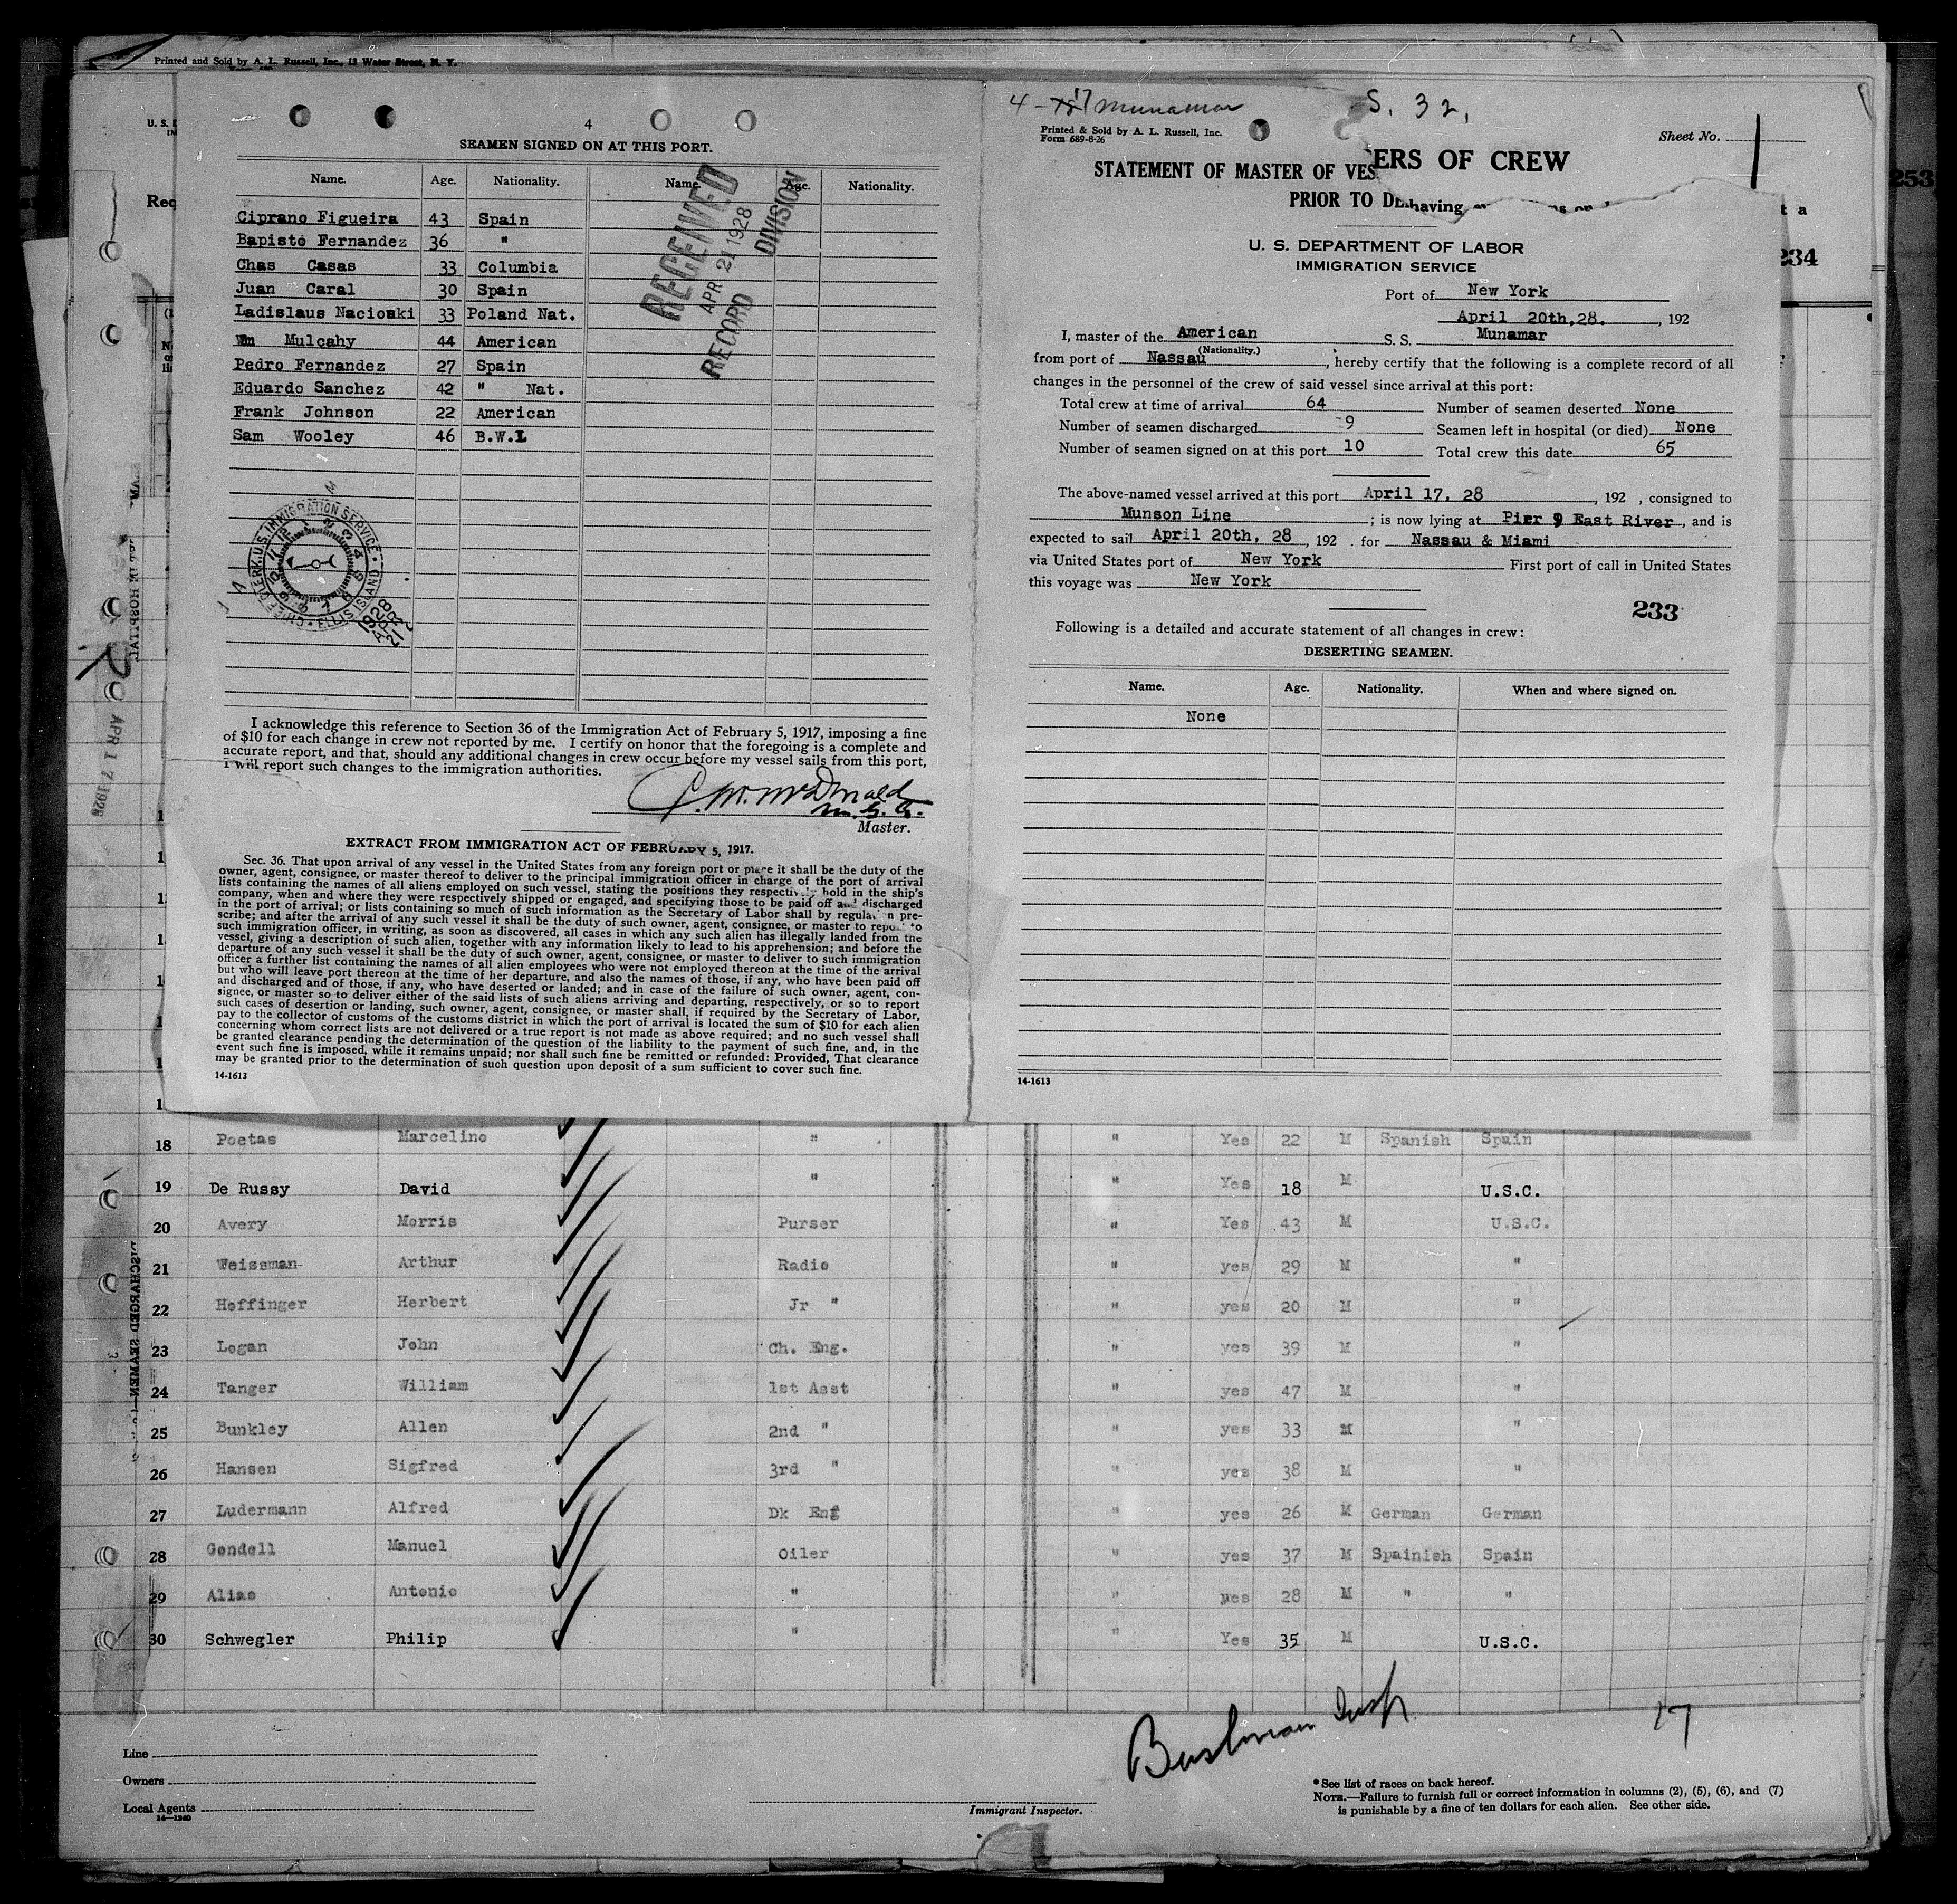 Printed and Sold by A. L. Russell, Inc., 13 Water Street, N. Y.
4
SEAMEN SIGNED ON AT THIS PORT.
Name. Age. Nationality. Name. Age. Nationality.
Ciprano Figueira 43 Spain
Bapisto Fernandez 36 "
Chas Casas 33 Columbia
Juan Caral 30 Spain
Ladislaus Nacioski 33 Poland Nat.
Wm Mulcahy 44 American
Pedro Fernandez 27 Spain
Eduardo Sanchez 42 " Nat.
Frank Johnson 22 American
Sam Wooley 46 B.W.I
RECEIVED
APR 21 1928
RECORD DIVISION
CHIEF CLERK U.S. IMMIGRATION SERVICE
ELLIS ISLAND
1928
APR
21
I acknowledge this reference to Section 36 of the Immigration Act of February 5, 1917, imposing a fine
of $10 for each change in crew not reported by me. I certify on honor that the foregoing is a complete and
accurate report, and that, should any additional changes in crew occur before my vessel sails from this port,
I will report such changes to the immigration authorities.
Master.
EXTRACT FROM IMMIGRATION ACT OF FEBRUARY 5, 1917.
Sec. 36. That upon arrival of any vessel in the United States from any foreign port or place it shall be the duty of the
owner, agent, consignee, or master thereof to deliver to the principal immigration officer in charge of the port of arrival
lists containing the names of all aliens employed on such vessel, stating the positions they respectively hold in the ship's
company, when and where they were respectively shipped or engaged, and specifying those to be paid off and discharged
in the port of arrival; or lists containing so much of such information as the Secretary of Labor shall by regulation pre-
scribe; and after the arrival of any such vessel it shall be the duty of such owner, agent, consignee, or master to report to
such immigration officer, in writing, as soon as discovered, all cases in which any such alien has illegally landed from the
vessel, giving a description of such alien, together with any information likely to lead to his apprehension; and before the
departure of any such vessel it shall be the duty of such owner, agent, consignee, or master to deliver to such immigration
officer a further list containing the names of all alien employees who were not employed thereon at the time of the arrival
but who will leave port thereon at the time of her departure, and also the names of those, if any, who have been paid off
and discharged and of those, if any, who have deserted or landed; and in case of the failure of such owner, agent, con-
signee, or master so to deliver either of the said lists of such aliens arriving and departing, respectively, or so to report
such cases of desertion or landing, such owner, agent, consignee, or master shall, if required by the Secretary of Labor,
pay to the collector of customs of the customs district in which the port of arrival is located the sum of $10 for each alien
concerning whom correct lists are not delivered or a true report is not made as above required; and no such vessel shall
be granted clearance pending the determination of the question of the liability to the payment of such fine, and, in the
event such fine is imposed, while it remains unpaid; nor shall such fine be remitted or refunded: Provided, That clearance
may be granted prior to the determination of such question upon deposit of a sum sufficient to cover such fine.
14-1613
APR 17 1928
4-17 Munamar S. 32,
Printed & Sold by A. L. Russell, Inc.
Form 689-8-26
Sheet No. 1
ERS OF CREW
STATEMENT OF MASTER OF VES
PRIOR TO DE
having
253
234
U. S. DEPARTMENT OF LABOR
IMMIGRATION SERVICE
Port of New York
April 20th,28. , 192
I, master of the American S. S. Munamar
(Nationality.)
from port of Nassau , hereby certify that the following is a complete record of all
changes in the personnel of the crew of said vessel since arrival at this port:
Total crew at time of arrival 64 Number of seamen deserted None
Number of seamen discharged 9 Seamen left in hospital (or died) None
Number of seamen signed on at this port 10 Total crew this date 65
The above-named vessel arrived at this port April 17, 28 , 192 , consigned to
Munson Line ; is now lying at Pier 9 East River , and is
expected to sail April 20th, 28 , 192 . for Nassau & Miami
via United States port of New York First port of call in United States
this voyage was New York
233
Following is a detailed and accurate statement of all changes in crew:
DESERTING SEAMEN.
Name. Age. Nationality. When and where signed on.
None
14-1613
18 Poetas Marcelino " " Yes 22 M Spanish Spain
19 De Russy David " " Yes 18 M U.S.C.
20 Avery Morris Purser " Yes 43 M U.S.C.
21 Weissman Arthur Radio " yes 29 M "
22 Hoffinger Herbert Jr " " yes 20 M "
23 Logan John Ch. Eng. " yes 39 M "
24 Tanger William 1st Asst " yes 47 M "
25 Bunkley Allen 2nd " " yes 33 M "
26 Hansen Sigfred 3rd " " yes 38 M "
27 Ludermann Alfred Dk Eng " yes 26 M German German
28 Gondell Manuel Oiler " yes 37 M Spainish Spain
29 Alias Antonio " " yes 28 M " "
30 Schwegler Philip " " Yes 35 M U.S.C.
DISCHARGED SEAMEN
Bushman Insp 17
Line
Owners
Local Agents
14-1240
Immigrant Inspector.
*See list of races on back hereof.
NOTE.—Failure to furnish full or correct information in columns (2), (5), (6), and (7)
is punishable by a fine of ten dollars for each alien. See other side.